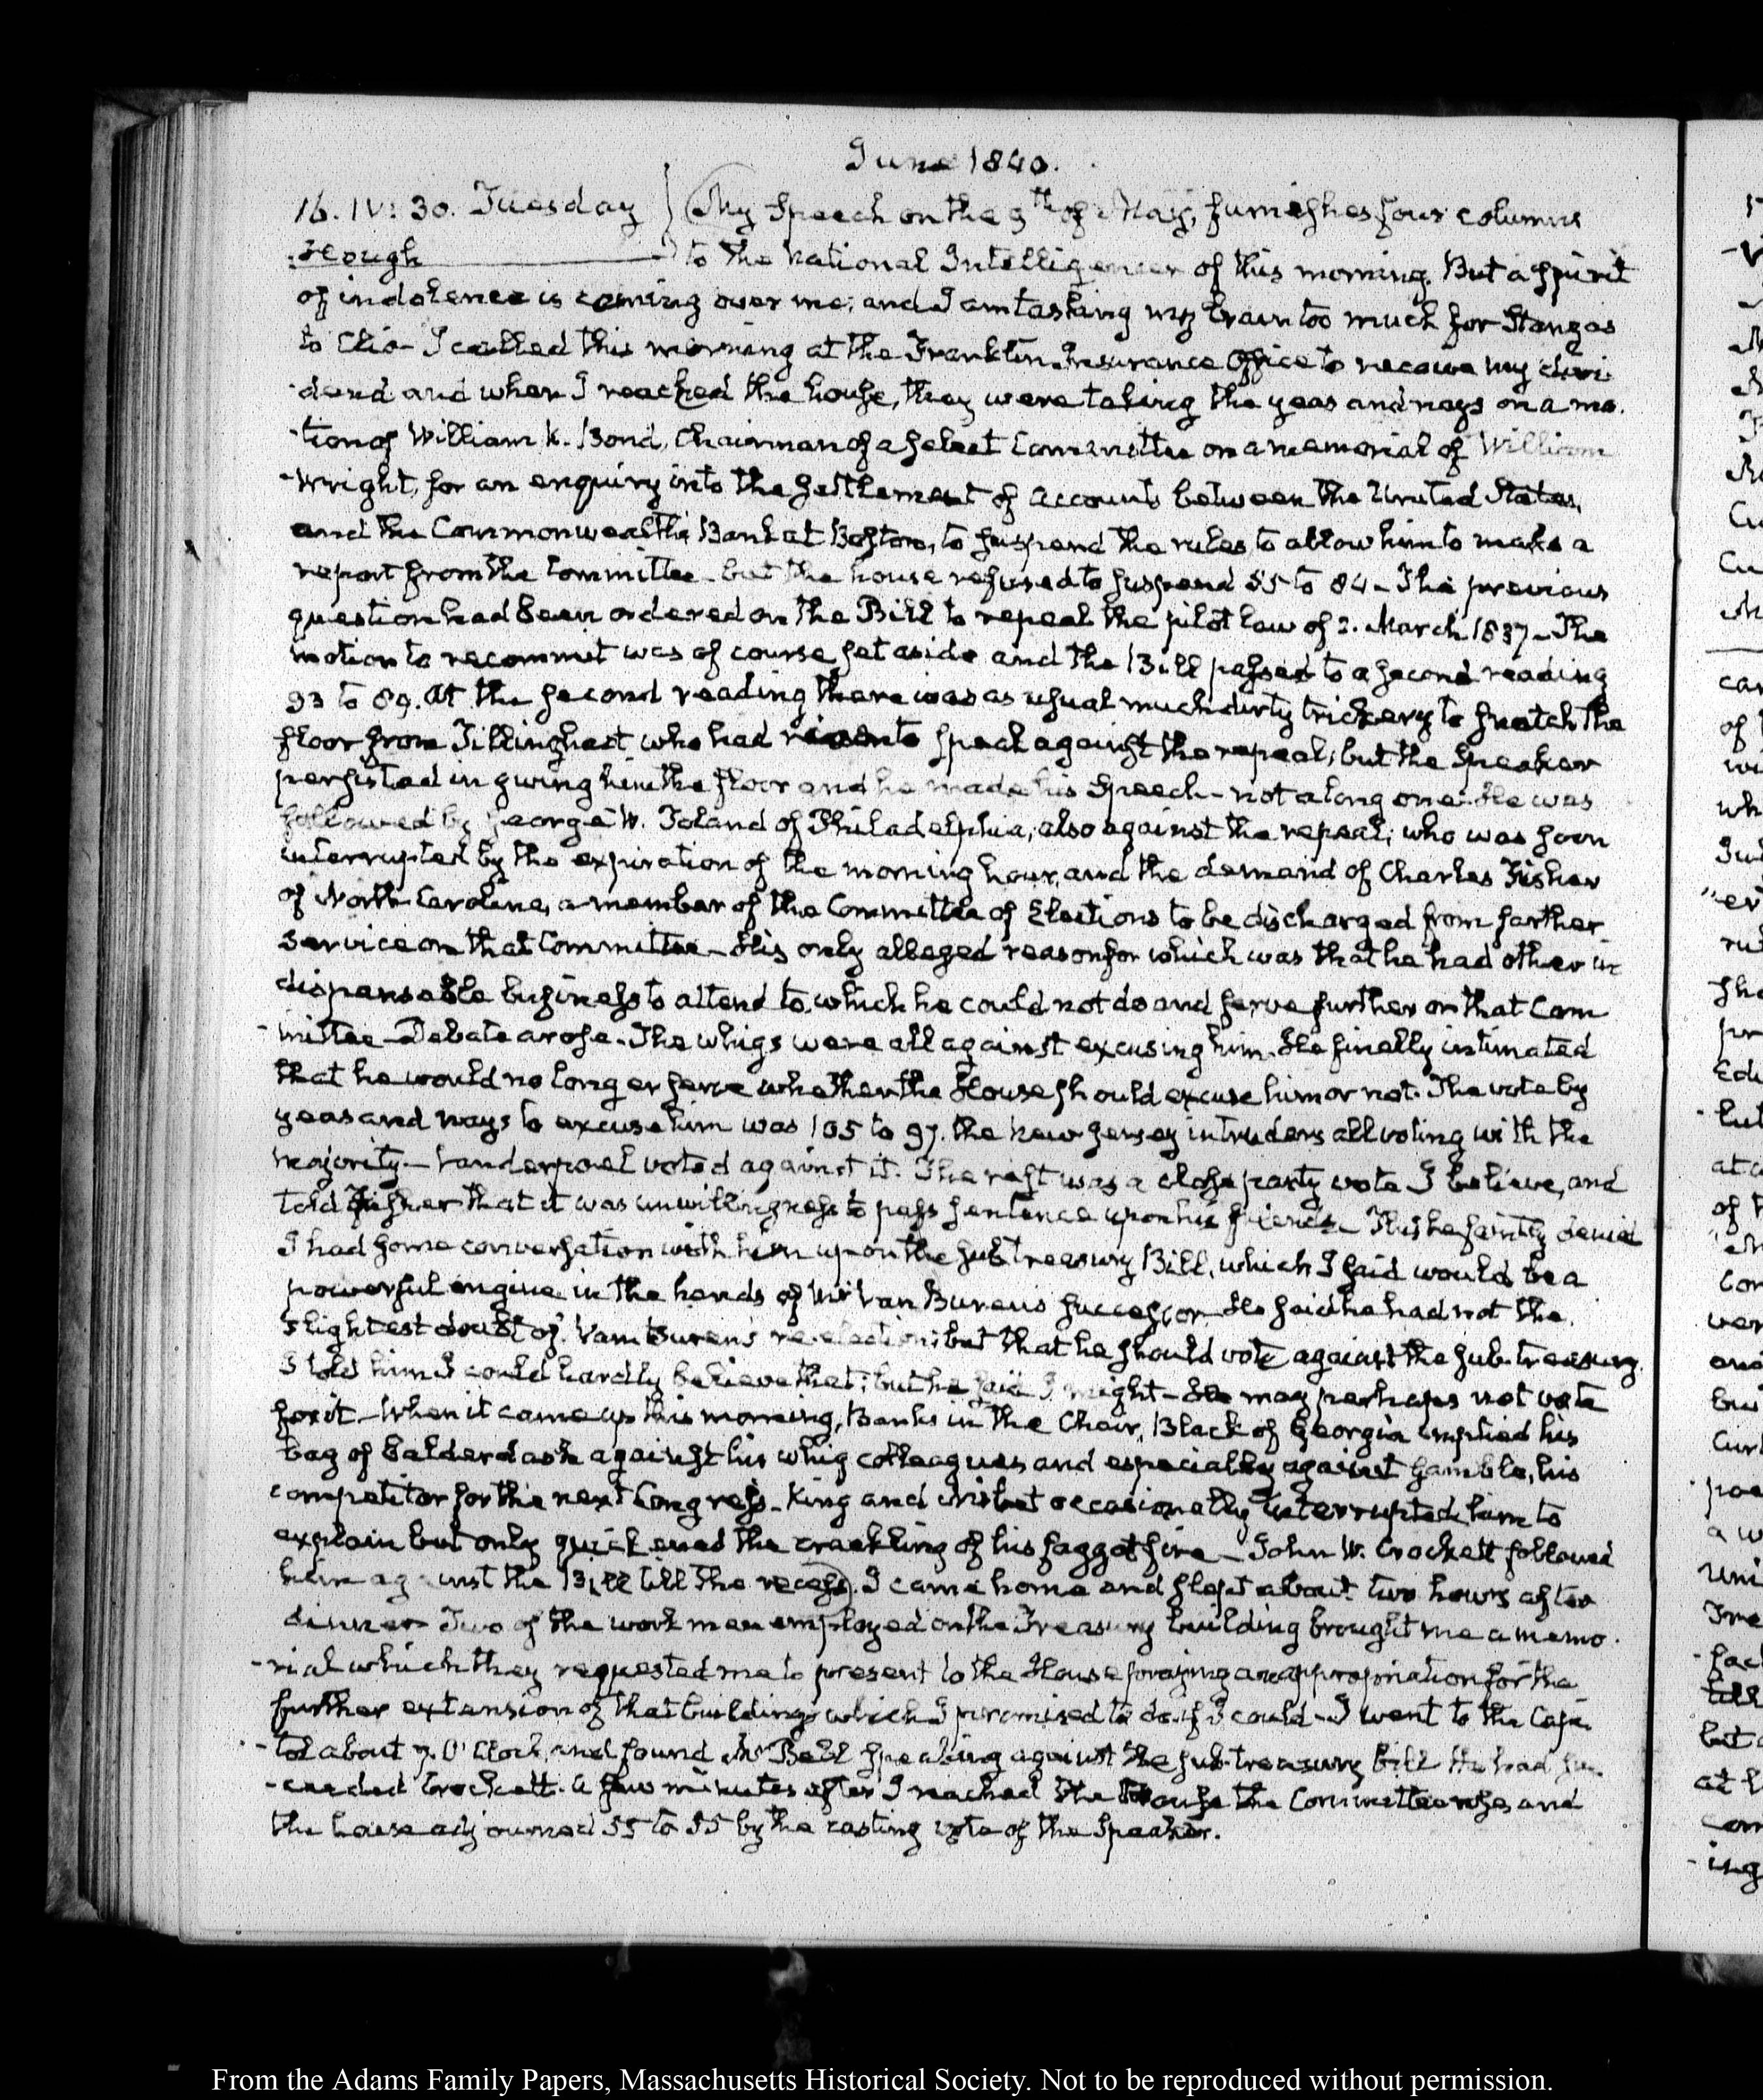 June 1840.
16. IV: 30. Tuesday } My Speech on the 9th of May, furnishes four columns
Hough to the National Intelligencer of this morning. But a spirit
of indolence is coming over me; and I am tasking my brain too much for Stanzas
to Clio— I called this morning at the Franklin Insurance Office to receive my divi-
dend and when I reached the house, they were taking the yeas and nays on a mo-
tion of William K. Bond, Chairman of a select Committee on a memorial of William
Wright, for an enquiry into the settlement of accounts between the United States,
and the Commonwealth Bank at Boston, to suspend the rules to allow him to make a
report from the Committee— but the house refused to suspend 55 to 84— The previous
question had been ordered on the Bill to repeal the pilot law of 2. March 1837— The
motion to recommit was of course set aside and the Bill passed to a second reading
93 to 89. At the second reading there was as usual much dirty trickery to snatch the
floor from Tillinghast who had risen to speak against the repeal; but the Speaker
persisted in giving him the floor and he made his Speech— not a long one. He was
followed by George W. Toland of Philadelphia, also against the repeal; who was soon
interrupted by the expiration of the morning hour, and the demand of Charles Fisher
of North-Carolina, a member of the Committee of Elections to be discharged from farther
service on that Committee— His only alleged reason for which was that he had other in
dispensable business to attend to, which he could not do and serve further on that Com
mittee— Debate arose. The whigs were all against excusing him. He finally intimated
that he would no longer serve whether the House should excuse him or not. The vote by
yeas and nays to excuse him was 105 to 97. the New Jersey intruders all voting with the
majority— Vanderpoel voted against it. The rest was a close party vote I believe, and
told Fisher that it was unwillingness to pass sentence upon his friends— This he faintly denied
I had some conversation with him upon the sub treasury Bill, which I said would be a
powerful engine in the hands of Mr Van Buren's successor— He said he had not the
slightest doubt of Van Buren's re-election; but that he should vote against the sub-treasury.
I told him I could hardly believe that; but he said I might— He may perhaps not vote
for it— When it came up this morning, Banks in the Chair, Black of Georgia emptied his
bag of balderdash against his whig colleagues and especially against Gamble, his
competitor for the next Congress— King and Nisbet occasionally interrupted him to
explain but only quickened the crackling of his faggot fire— John W. Crockett followed
him against the Bill till the recess. I came home and slept about two hours after
dinner— Two of the workmen employed on the Treasury building brought me a memo-
rial which they requested me to present to the House praying an appropriation for the
further extension of that building, which I promised to do if I could— I went to the Capi-
tol about 7. O'Clock, and found Mr Bell speaking against the sub-treasury bill He had suc-
ceeded Crockett. A few minutes after I reached the house the Committee rose, and
the house adjourned 55 to 55 by the casting vote of the Speaker.
From the Adams Family Papers, Massachusetts Historical Society. Not to be reproduced without permission.